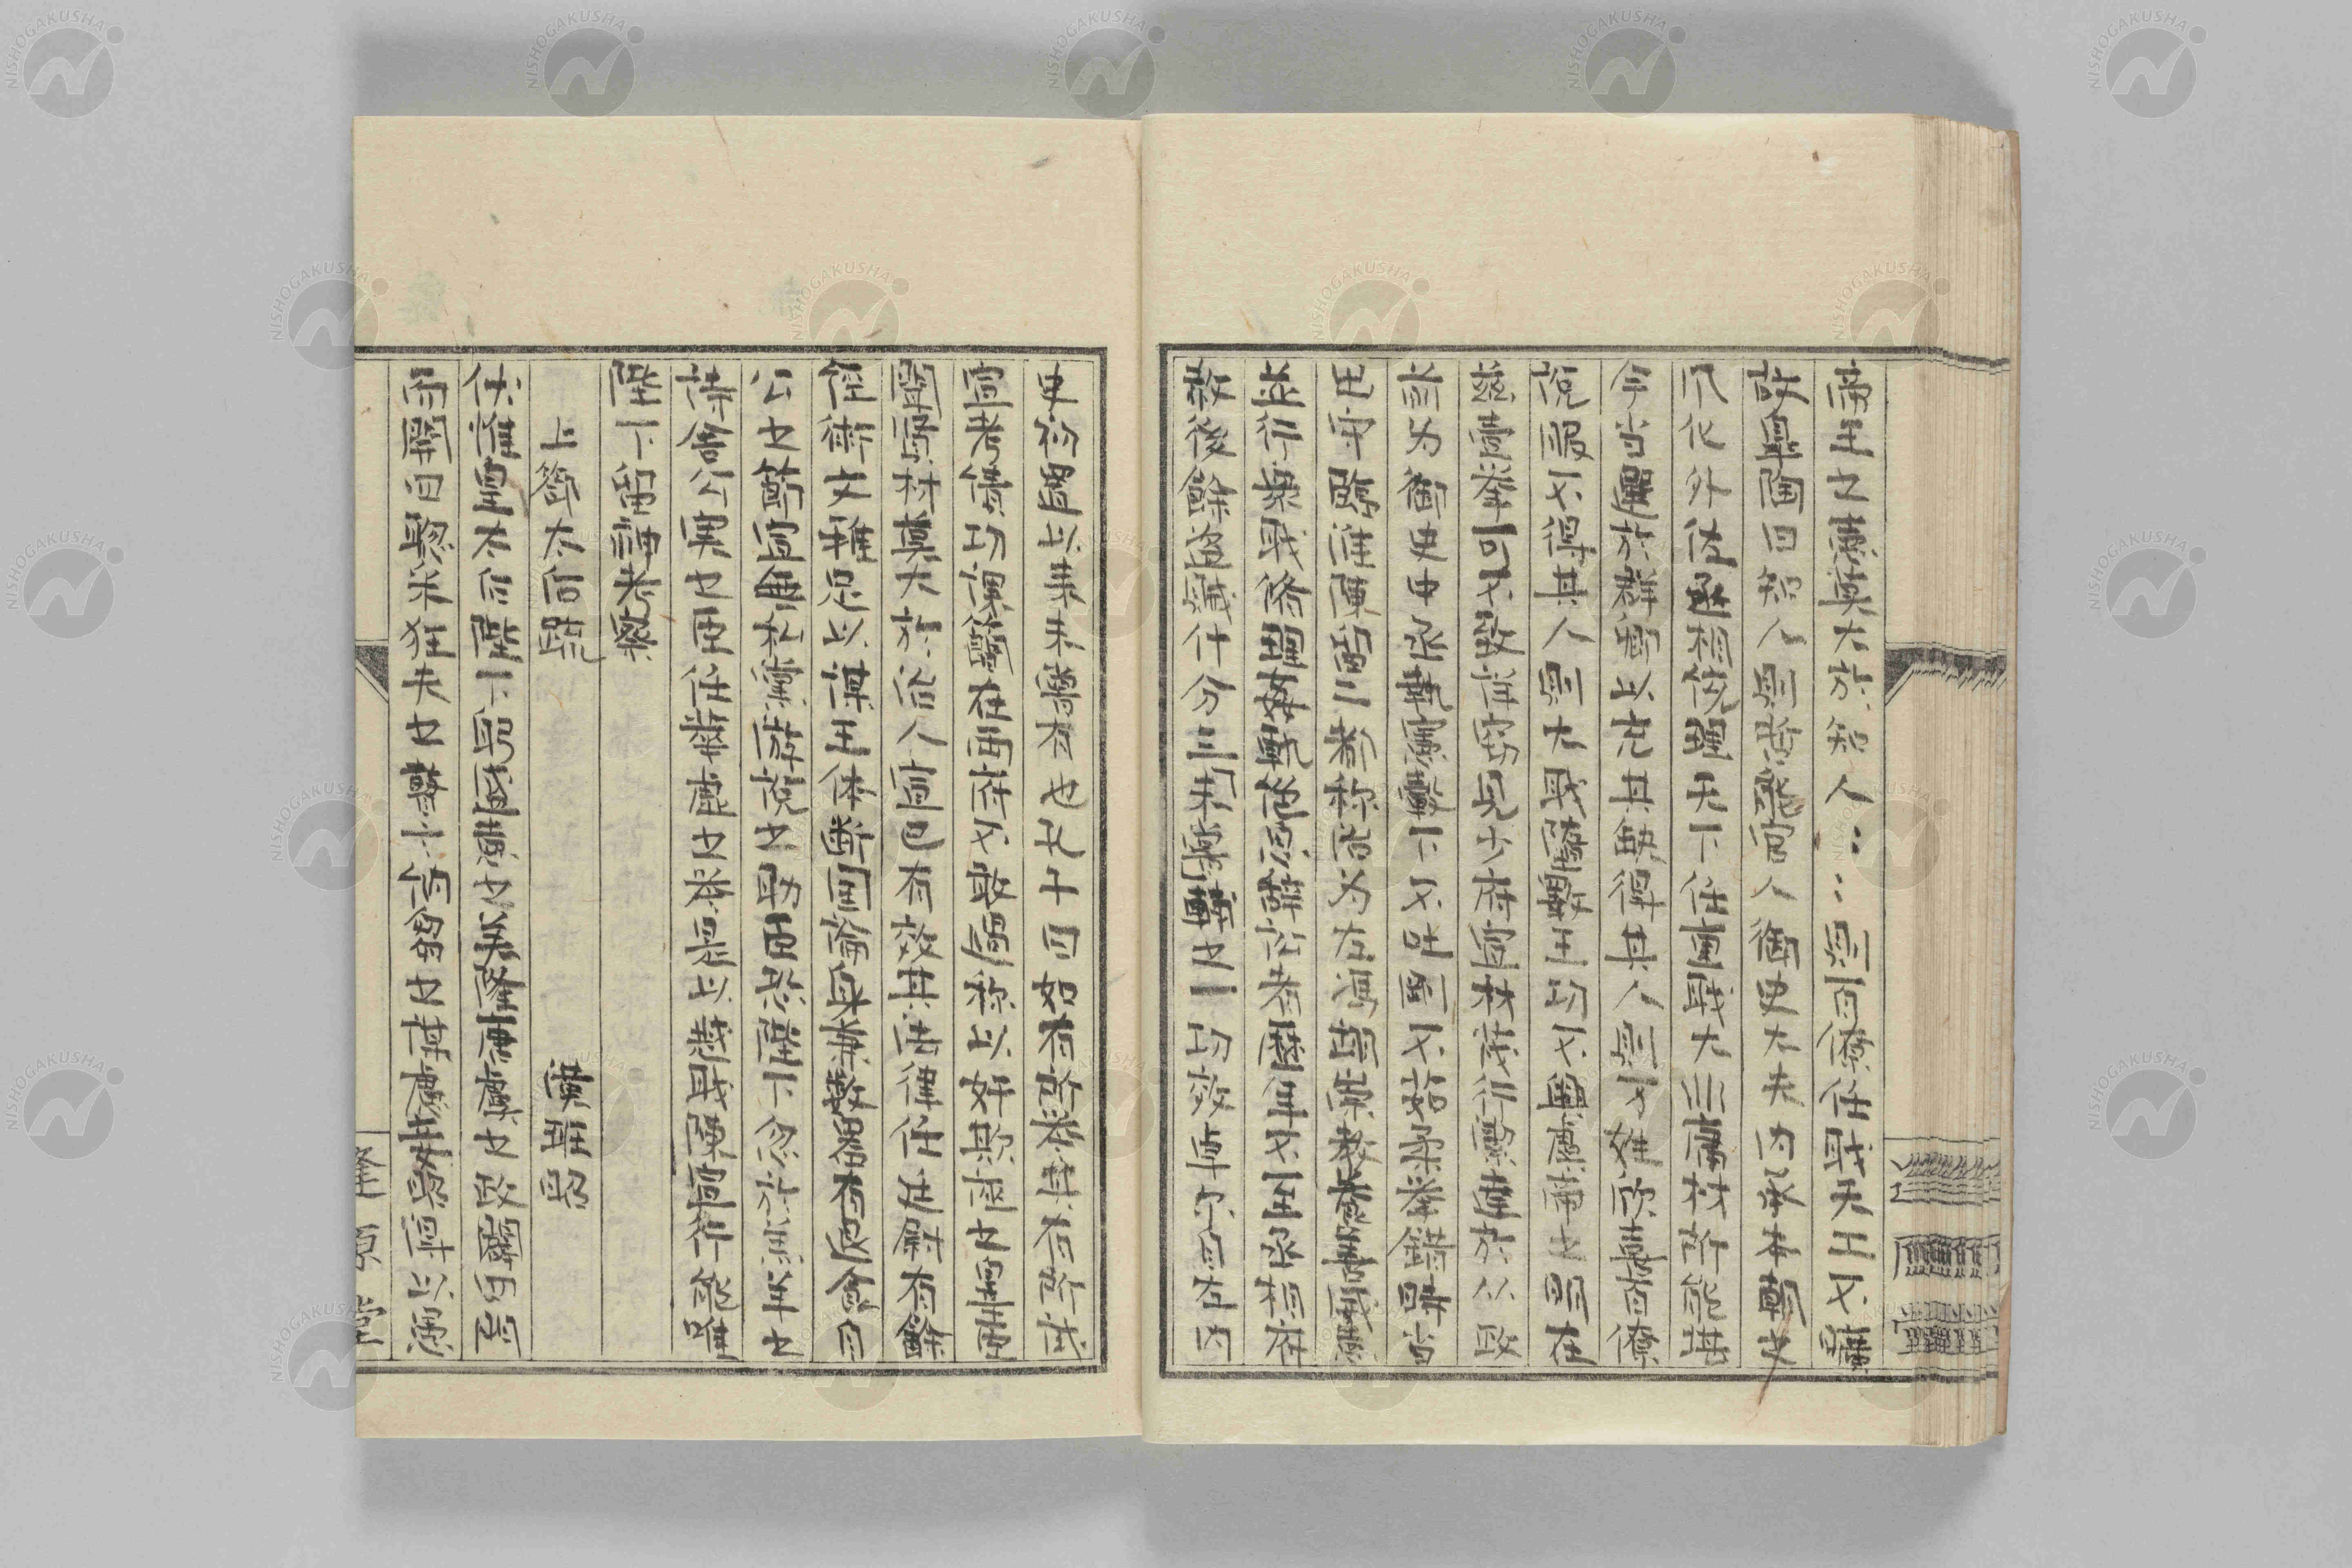 帝王之德莫大於知人〻〻則百僚任職天工不曠
故皐陶曰知人則哲能官人御史大夫内承本朝之
風化外佐丞相統理天下任重職大非庸材所能堪
今当選於群卿以充其缺得其人則万姓欣喜百僚
説服不得其人則大職墮斁王功不興虞帝之明在
茲壹挙可不致詳竊見少府宣材茂行絜達於從政
前為御史中丞執憲轂下不吐剛不茹柔挙錯時当
出守臨淮陳留二郡称治為左馮翊崇教養善威德
並行衆職修理姦軌絶息辭訟者歴年不至丞相府
赦後餘盜賊什分三未嘗輔之一功效卓尒自左内
史初置以来未嘗有也孔子曰如有所誉其有所試
宣考績功課簡在両府不敢過称以奸欺誣之罪臣
聞賢材莫大於治人宣已有效其法律任廷尉有餘
経術文雅足以謀王体断国論身兼数器有退食自
公之節宣無私党游説之助臣恐陛下忽於羔羊之
詩舍公実之臣任華虚之誉是以越職陳宣行能唯
陛下留神考察
上鄧太后疏　漢班昭
伏惟皇太后陛下躬盛德之美隆唐虞之政闢四門
而開四聡采狂夫之瞽言納芻之謀慮妾昭得以愚